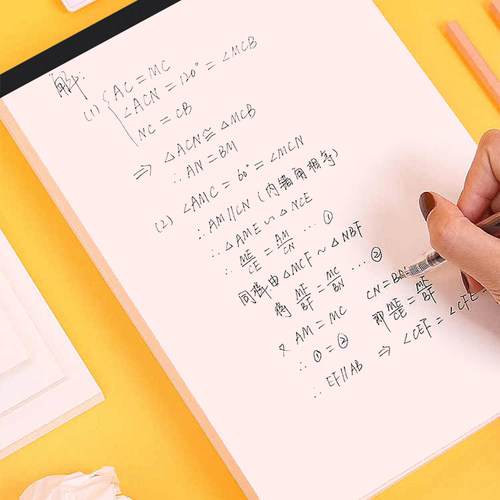 解:
(1) { AC = MC
∠ACN = 120° = ∠MCB
NC = CB
⇒ △ACN ≅ △MCB
∴ AN = BM
(2) ∠AMC = 60° = ∠MCN
∴ AM∥CN (内错角相等)
∴ △AME ∽ △NCE
∴ ME/CE = AM/CN … ①
同理由 △MCF ~ △NBF
得 MF/BF = MC/BN … ②
又 AM = MC CN = BN
∴ ① = ② 即 ME/CE = MF/BF
∴ EF∥AB ⇒ ∠CEF = ∠CFE